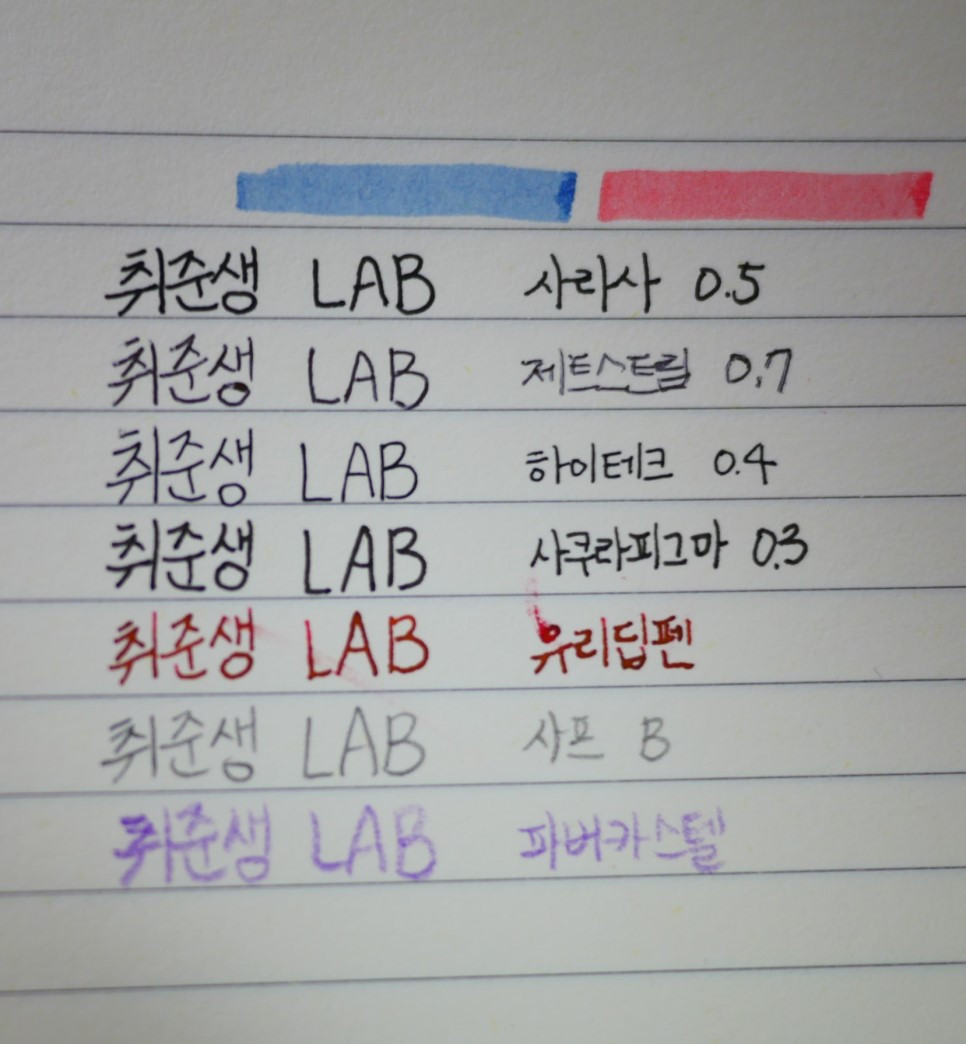 취준생 LAB 사라사 0.5
취준생 LAB 제트스트림 0.7
취준생 LAB 하이테크 0.4
취준생 LAB 사쿠라피그마 0.3
취준생 LAB 유리딥펜
취준생 LAB 샤프 B
취준생 LAB 파버카스텔